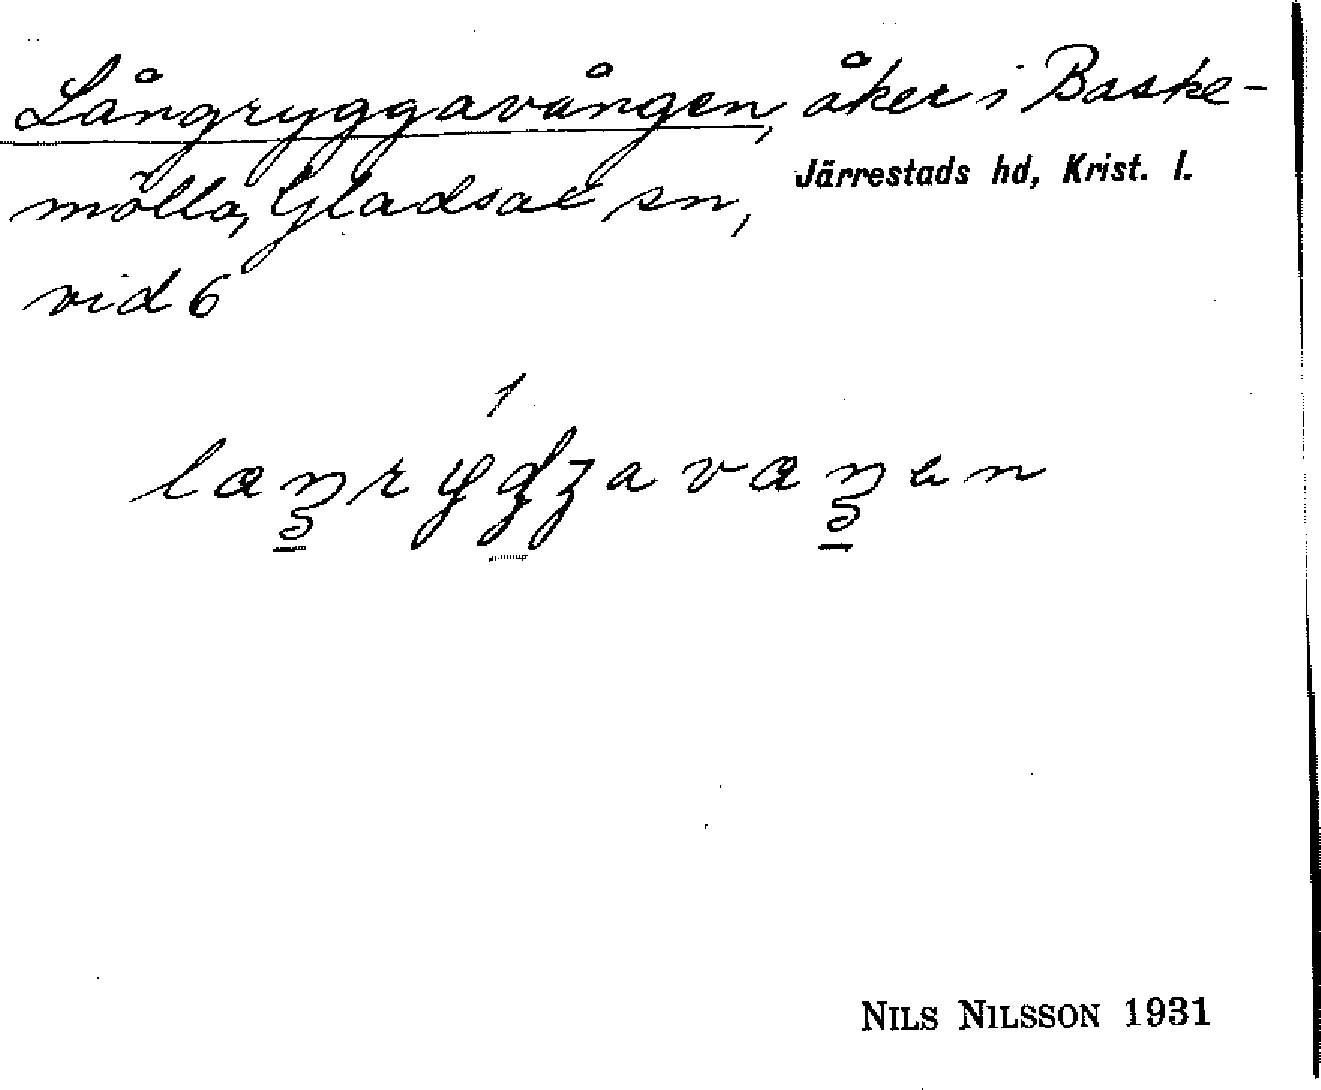 Långryggavången, åker i Baske-
mölla, Gladsax sn, Järrestads hd, Krist. l.
vid 6
NILS NILSSON 1931